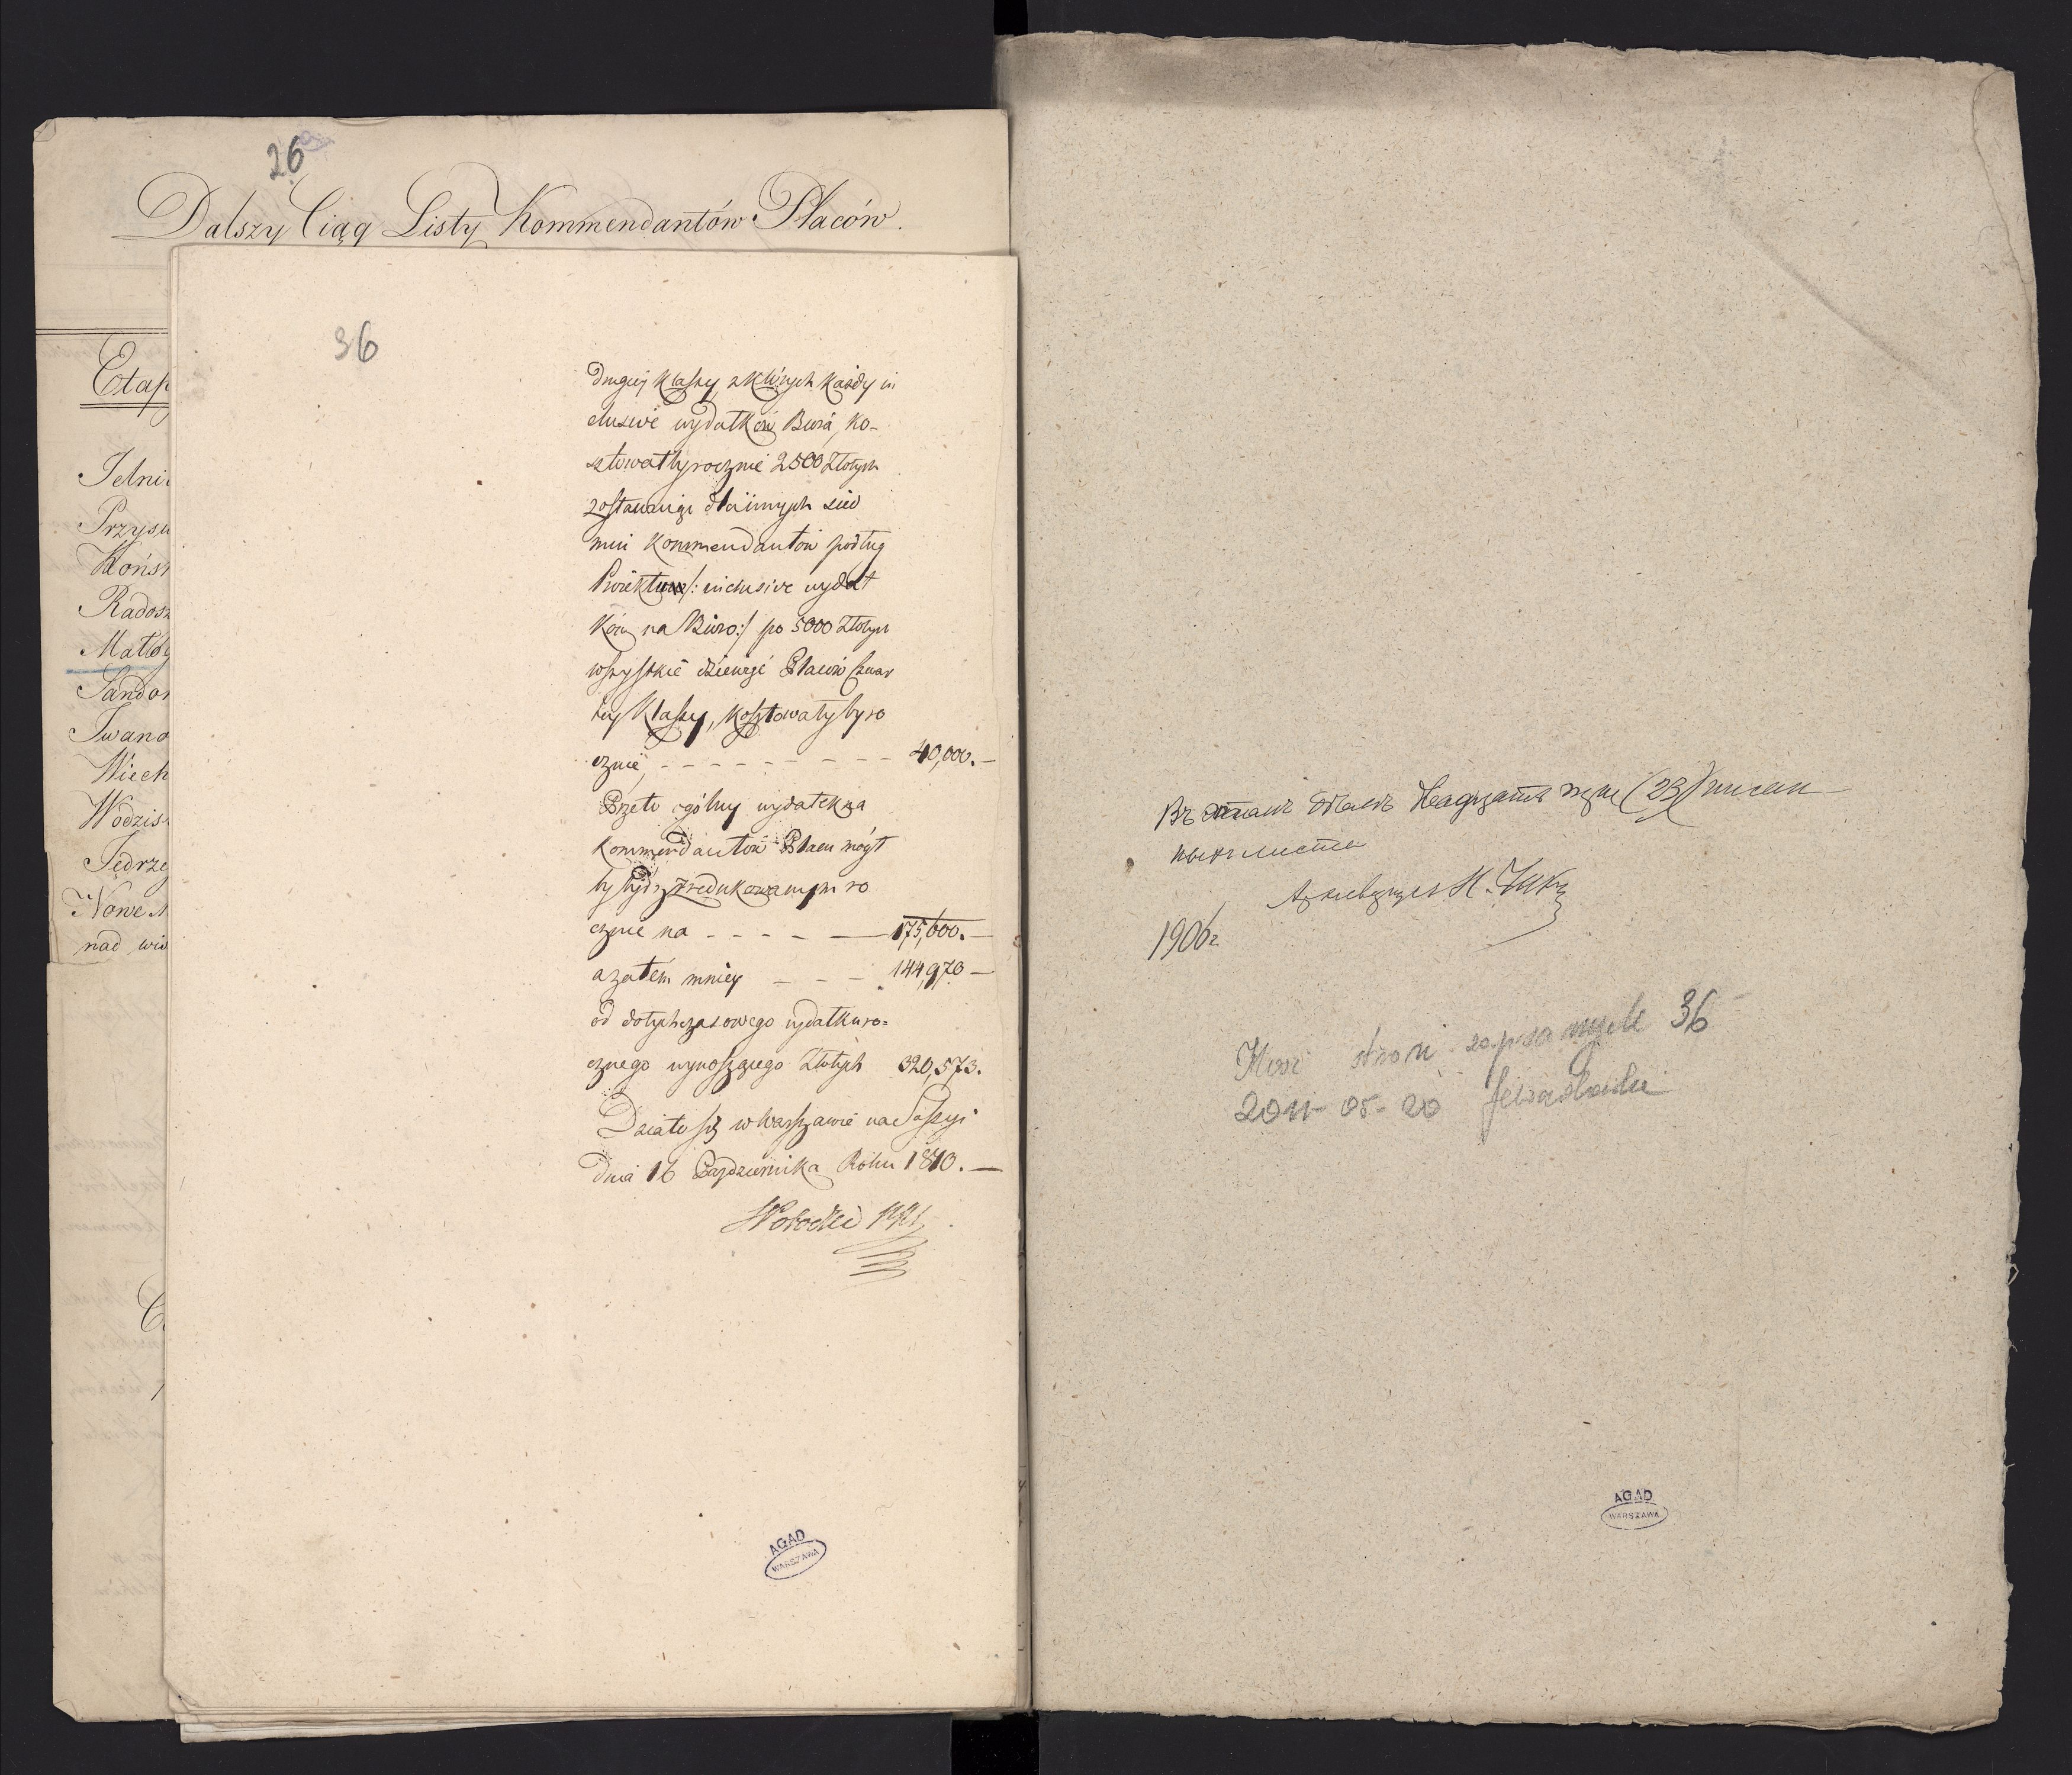 26
Dalszy Ciąg Listy Kommendantów Placów.
Etap
Jelni
Przysu
Końs
Radosz
Małog
Sandom
Iwano
Wiech
Wodzis
Jędrze
Nowe M
nad wis
36
drugiej klassy, z których każdy in
clusive wydatków Biura, ko-
sztowałby rocznie 2500 złotych
zostawując dla innych sied
miu Kommendantów podług
Proiektu /: inclusive wydat
ków na Biuro :/ po 5000 złotych
wszystkie Placów czwar
tey klassy, kosztowałyby ro
cznie, - - - - - - - - 40,000.-
Przeto ogólny wydatek na
Kommendantów Placu mógł
by bydź zredukowanym ro
cznie na - - - - 175,600.-
a zatém mniey - - - 144,973 -
od dotychczasowego wydatku ro=
cznego wynoszącego Złotych 320,573.
Działo się w Warszawie na Sessyi
dnia 16 Października Roku 1810. -
AGAD
WARSZAWA
Въ этомъ дѣлѣ двадцать три (23) писан-
ныхъ листа
Архиваріусъ
1906 г
Ilość stron zapisanych 36
2011-05-20
AGAD
WARSZAWA